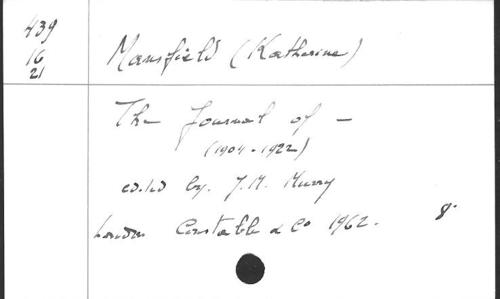 439
16
21
Mansfield (Katherine)
The Journal of -
(1904-1922)
edited by. J.M. Murry
London Constable & Co 1962. 8°